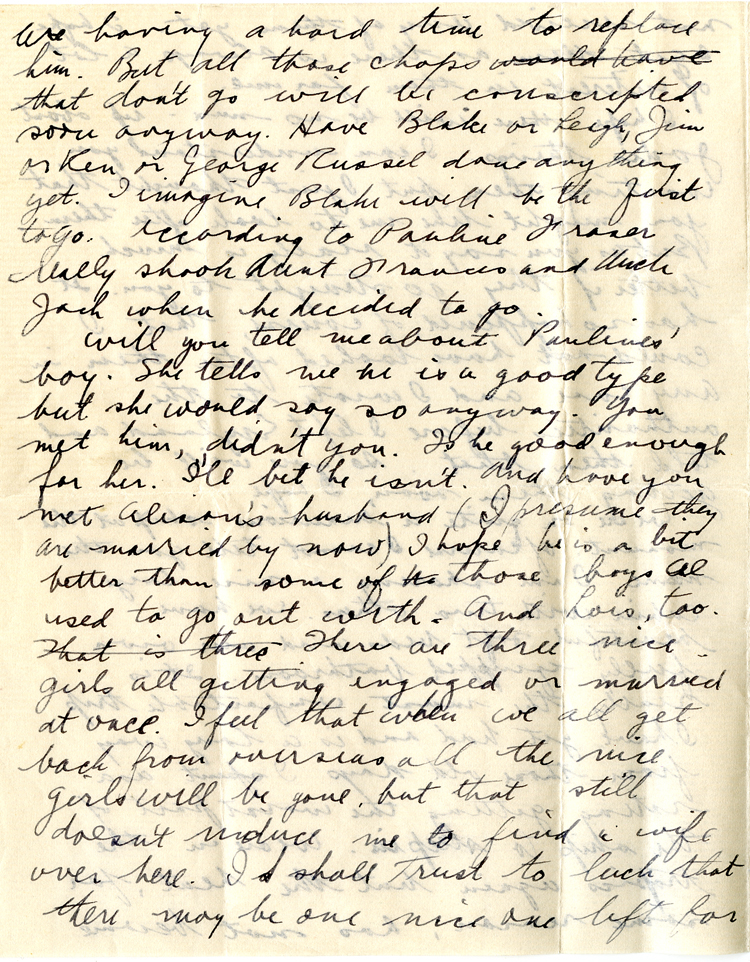 are having a hard time to replace
him. But all those chaps would have
that don't go will be conscripted
soon anyway. Have Blake or Leigh, Jim
or Ken or George Russel done anything
yet. I imagine Blake will be the first
to go. According to Pauline Fraser
really shook Aunt Frances and Unck
Jack when he decided to go.
will you tell me about Paulines'
boy. She tells me he is a good type
but she would say so anyway. You
met him, didn't you. Is he good enough
for her. I'll bet he isn't. And have you
met Alison's husband (I presume they
are married by now) I hope he is a bit
better than some of those boys Al
used to go out with. And Lois, too.
That is three There are three nice
girls all getting engaged or married
at once. I feel that when we all get
back from overseas all the nice
girls will be gone, but that still
doesn't induce me to find a wife
over here. I shall trust to luck that
there may be one nice one left for